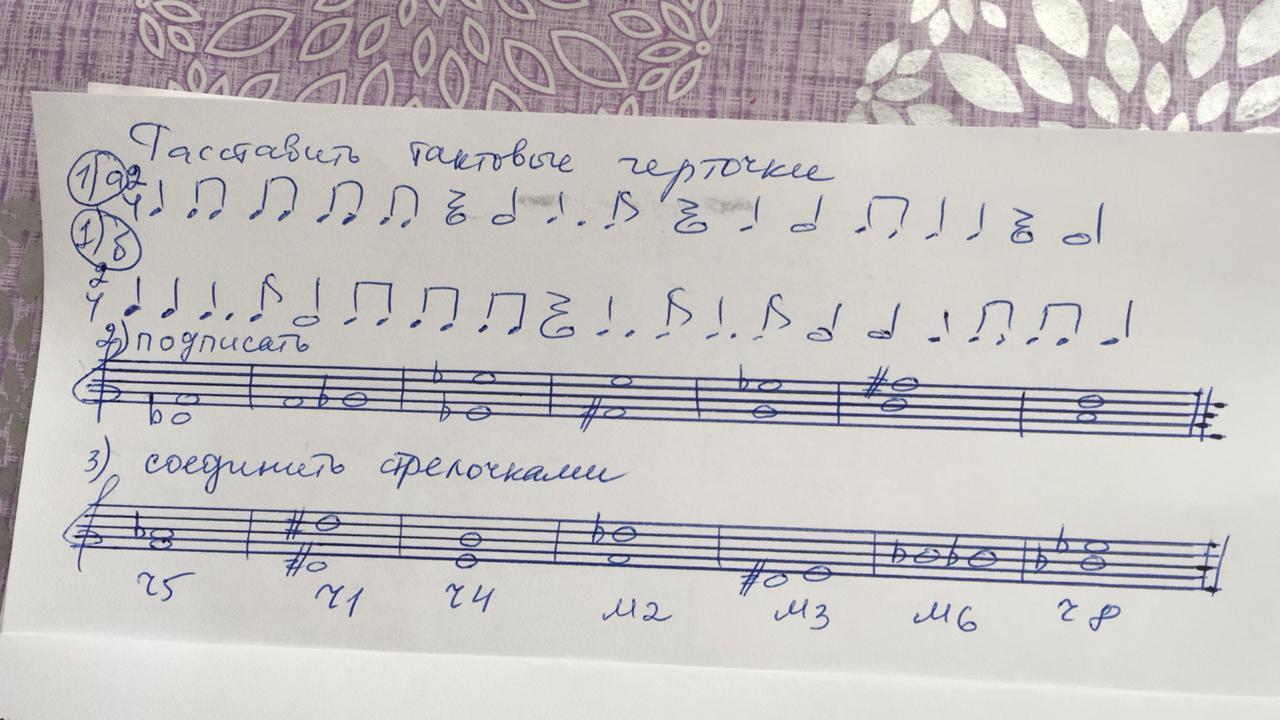 Расставить тактовые черточки
1)а 2
4
1)б
2
4
2) подписать
3) соединить стрелочками
ч5 ч1 ч4 м2 м3 м6 ч8